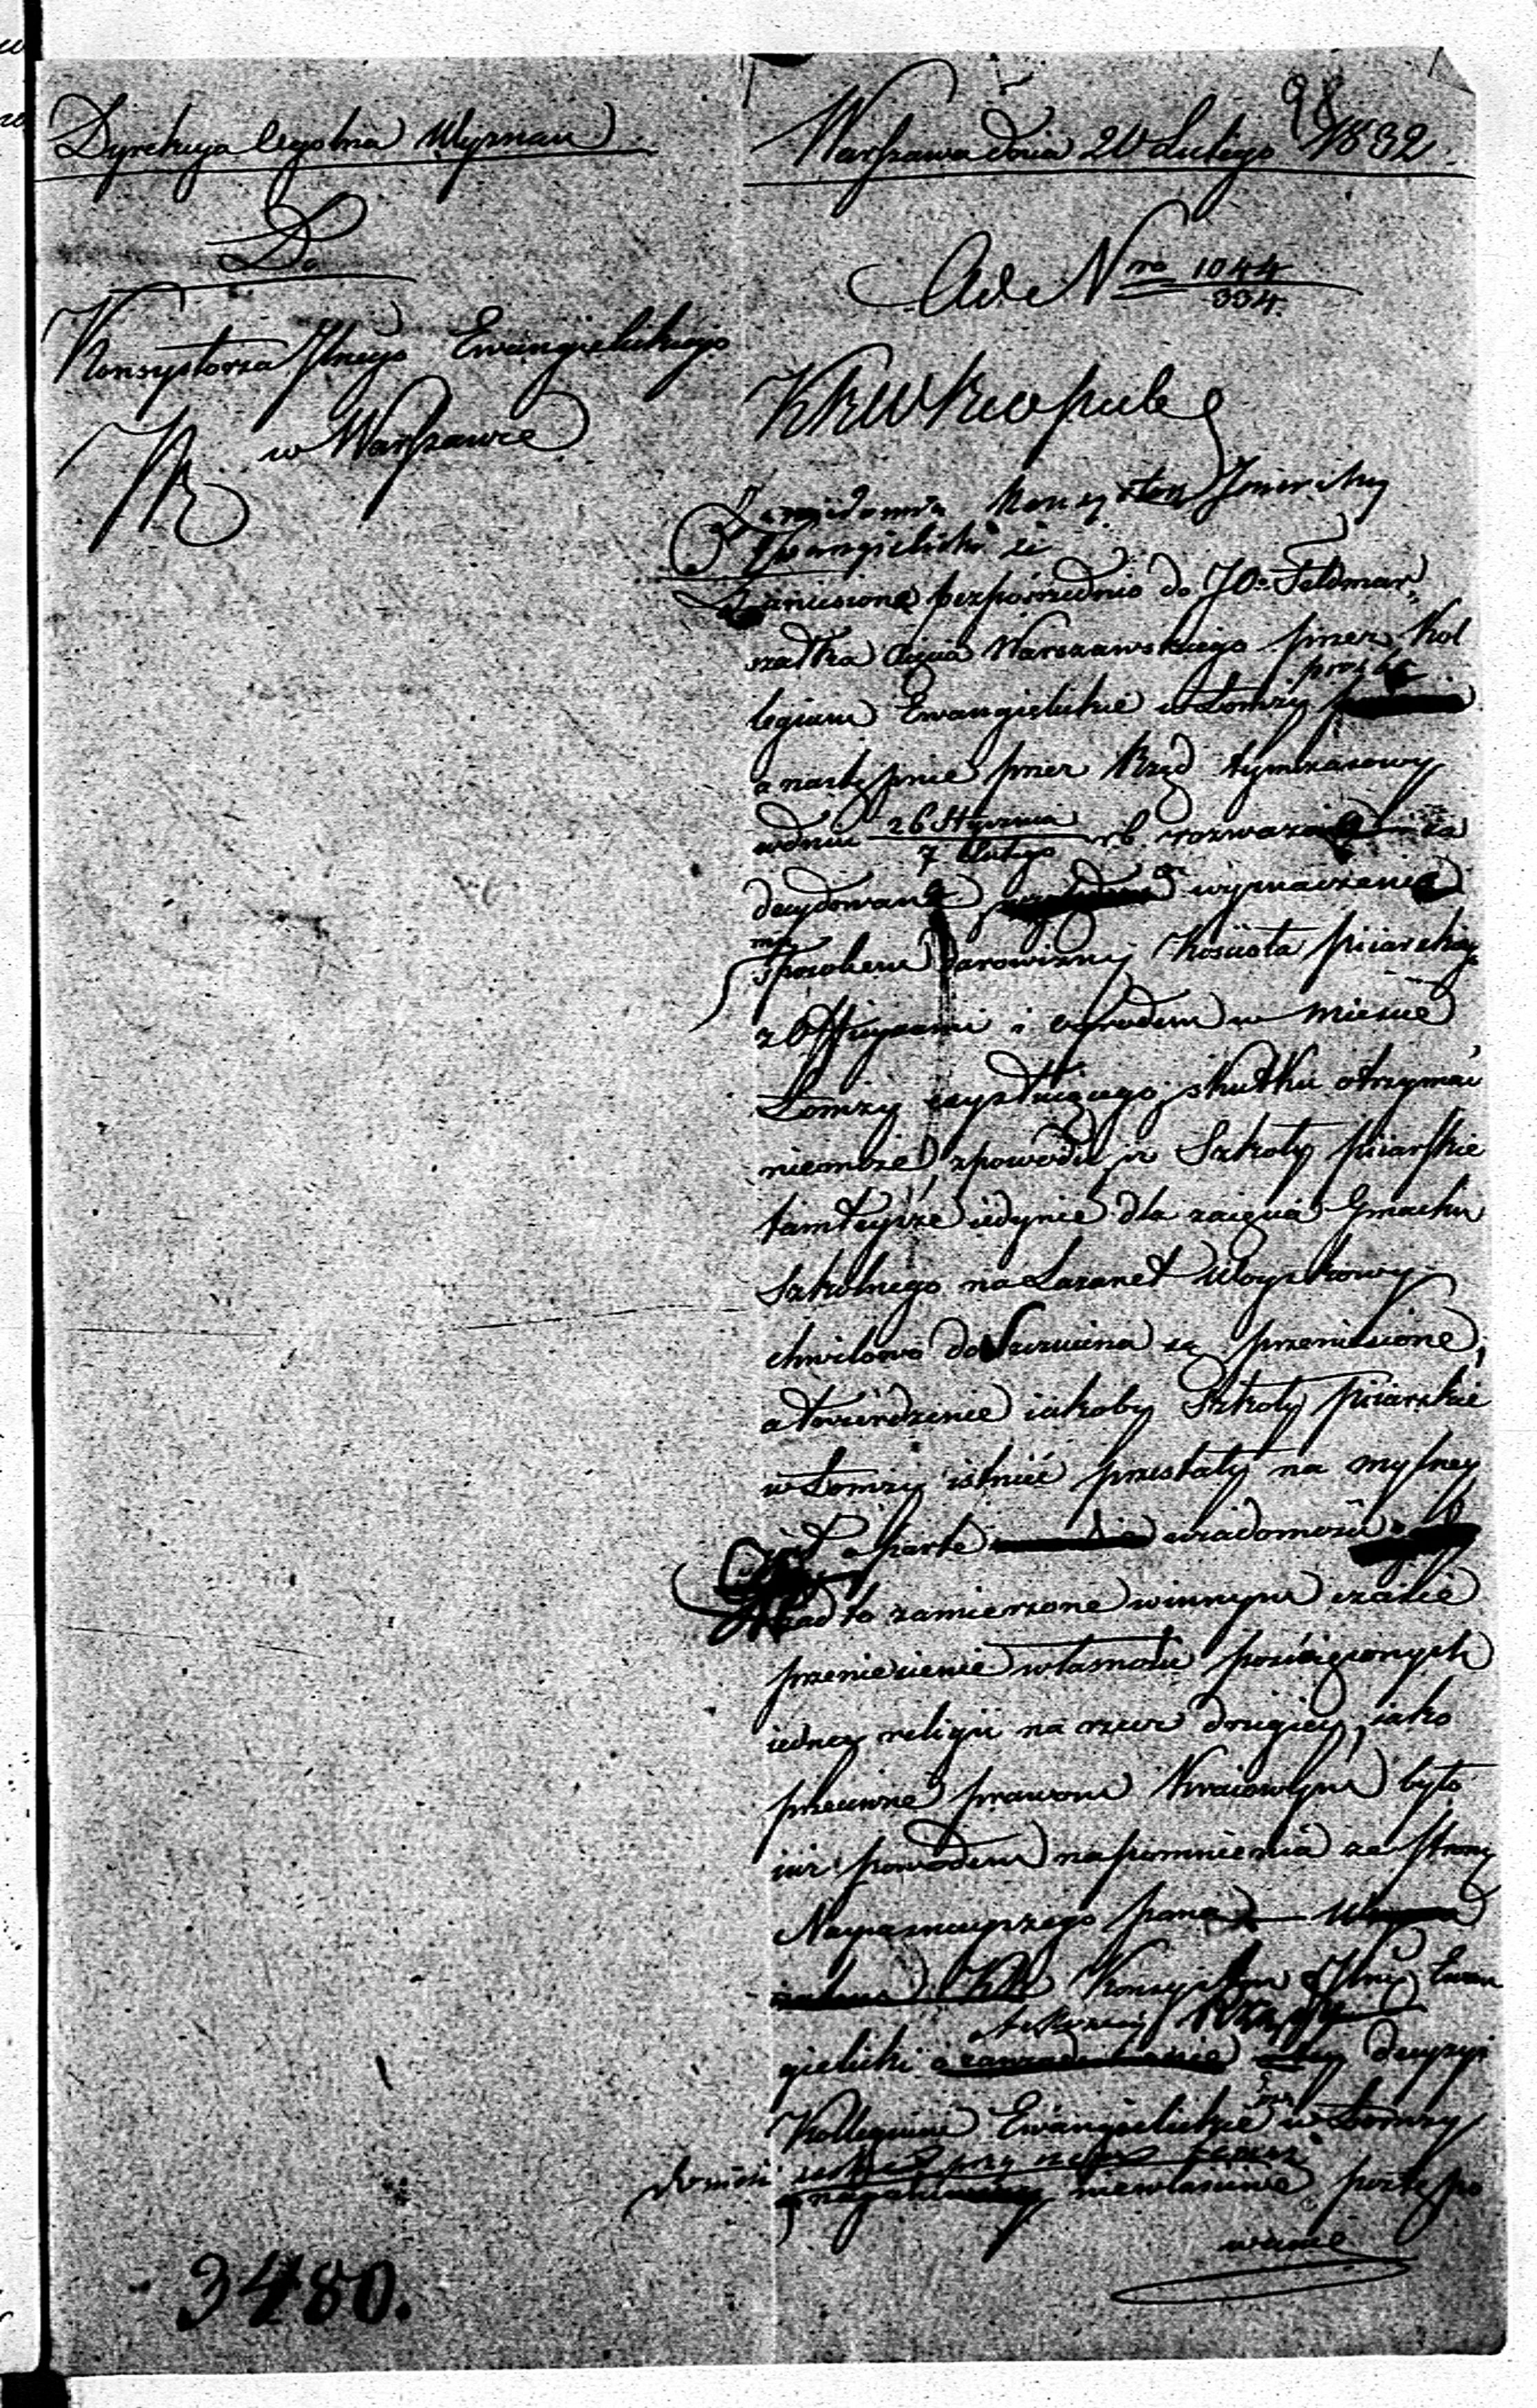 98
Dyrekcya Ogólna Wyznań
Do
Konsystorza Jlnego Ewangielickiego
w Warszawie
Warszawa dnia 20 Lutego 1832
Ad Nro 1044/334.
Zawiadamia Konsystorz Jeneralny
Ewangielicki że
zaniesiona bezpośrednio do JO. Feldmar,
szałka Xięcia Warszawskiego przez Kol
legium Ewangielickie w Łomży prośba
a następnie przez Rząd tymczasowy
w dniu 26 Stycznia / 7 Lutego r b.
decydowana wyznaczenia
sposobem darowizny Kościoła piiarskiego
z Officynami i ogrodem w mieście
Łomży skutku otrzymać
niemoże, zpowodu iż Szkoły piiarskie
tamteysze iedynie dla zaięcia Gmachu
Szkolnego na Lazaret Woyskowy
chwilowo do Szczuczyna są przeniesione,
a twierdzenie iakoby Szkoły piiarskie
w Łomży istnieć przestały na mylney
oparte wiadomości
Nad to zamierzone w innym czasie
przeniesienie własności poświęconych
iedney religii na rzecz drugiey, iako
przeciwne prawom Kraiowym było
iuż powodem napomnienia ze strony
Nayiaśnieyszego Pana
Konsystorz Jlny Ewan
gielicki decyzyi
Kollegium Ewangielickie w Łomży
niewłasciwe postępo
wanie
3480.